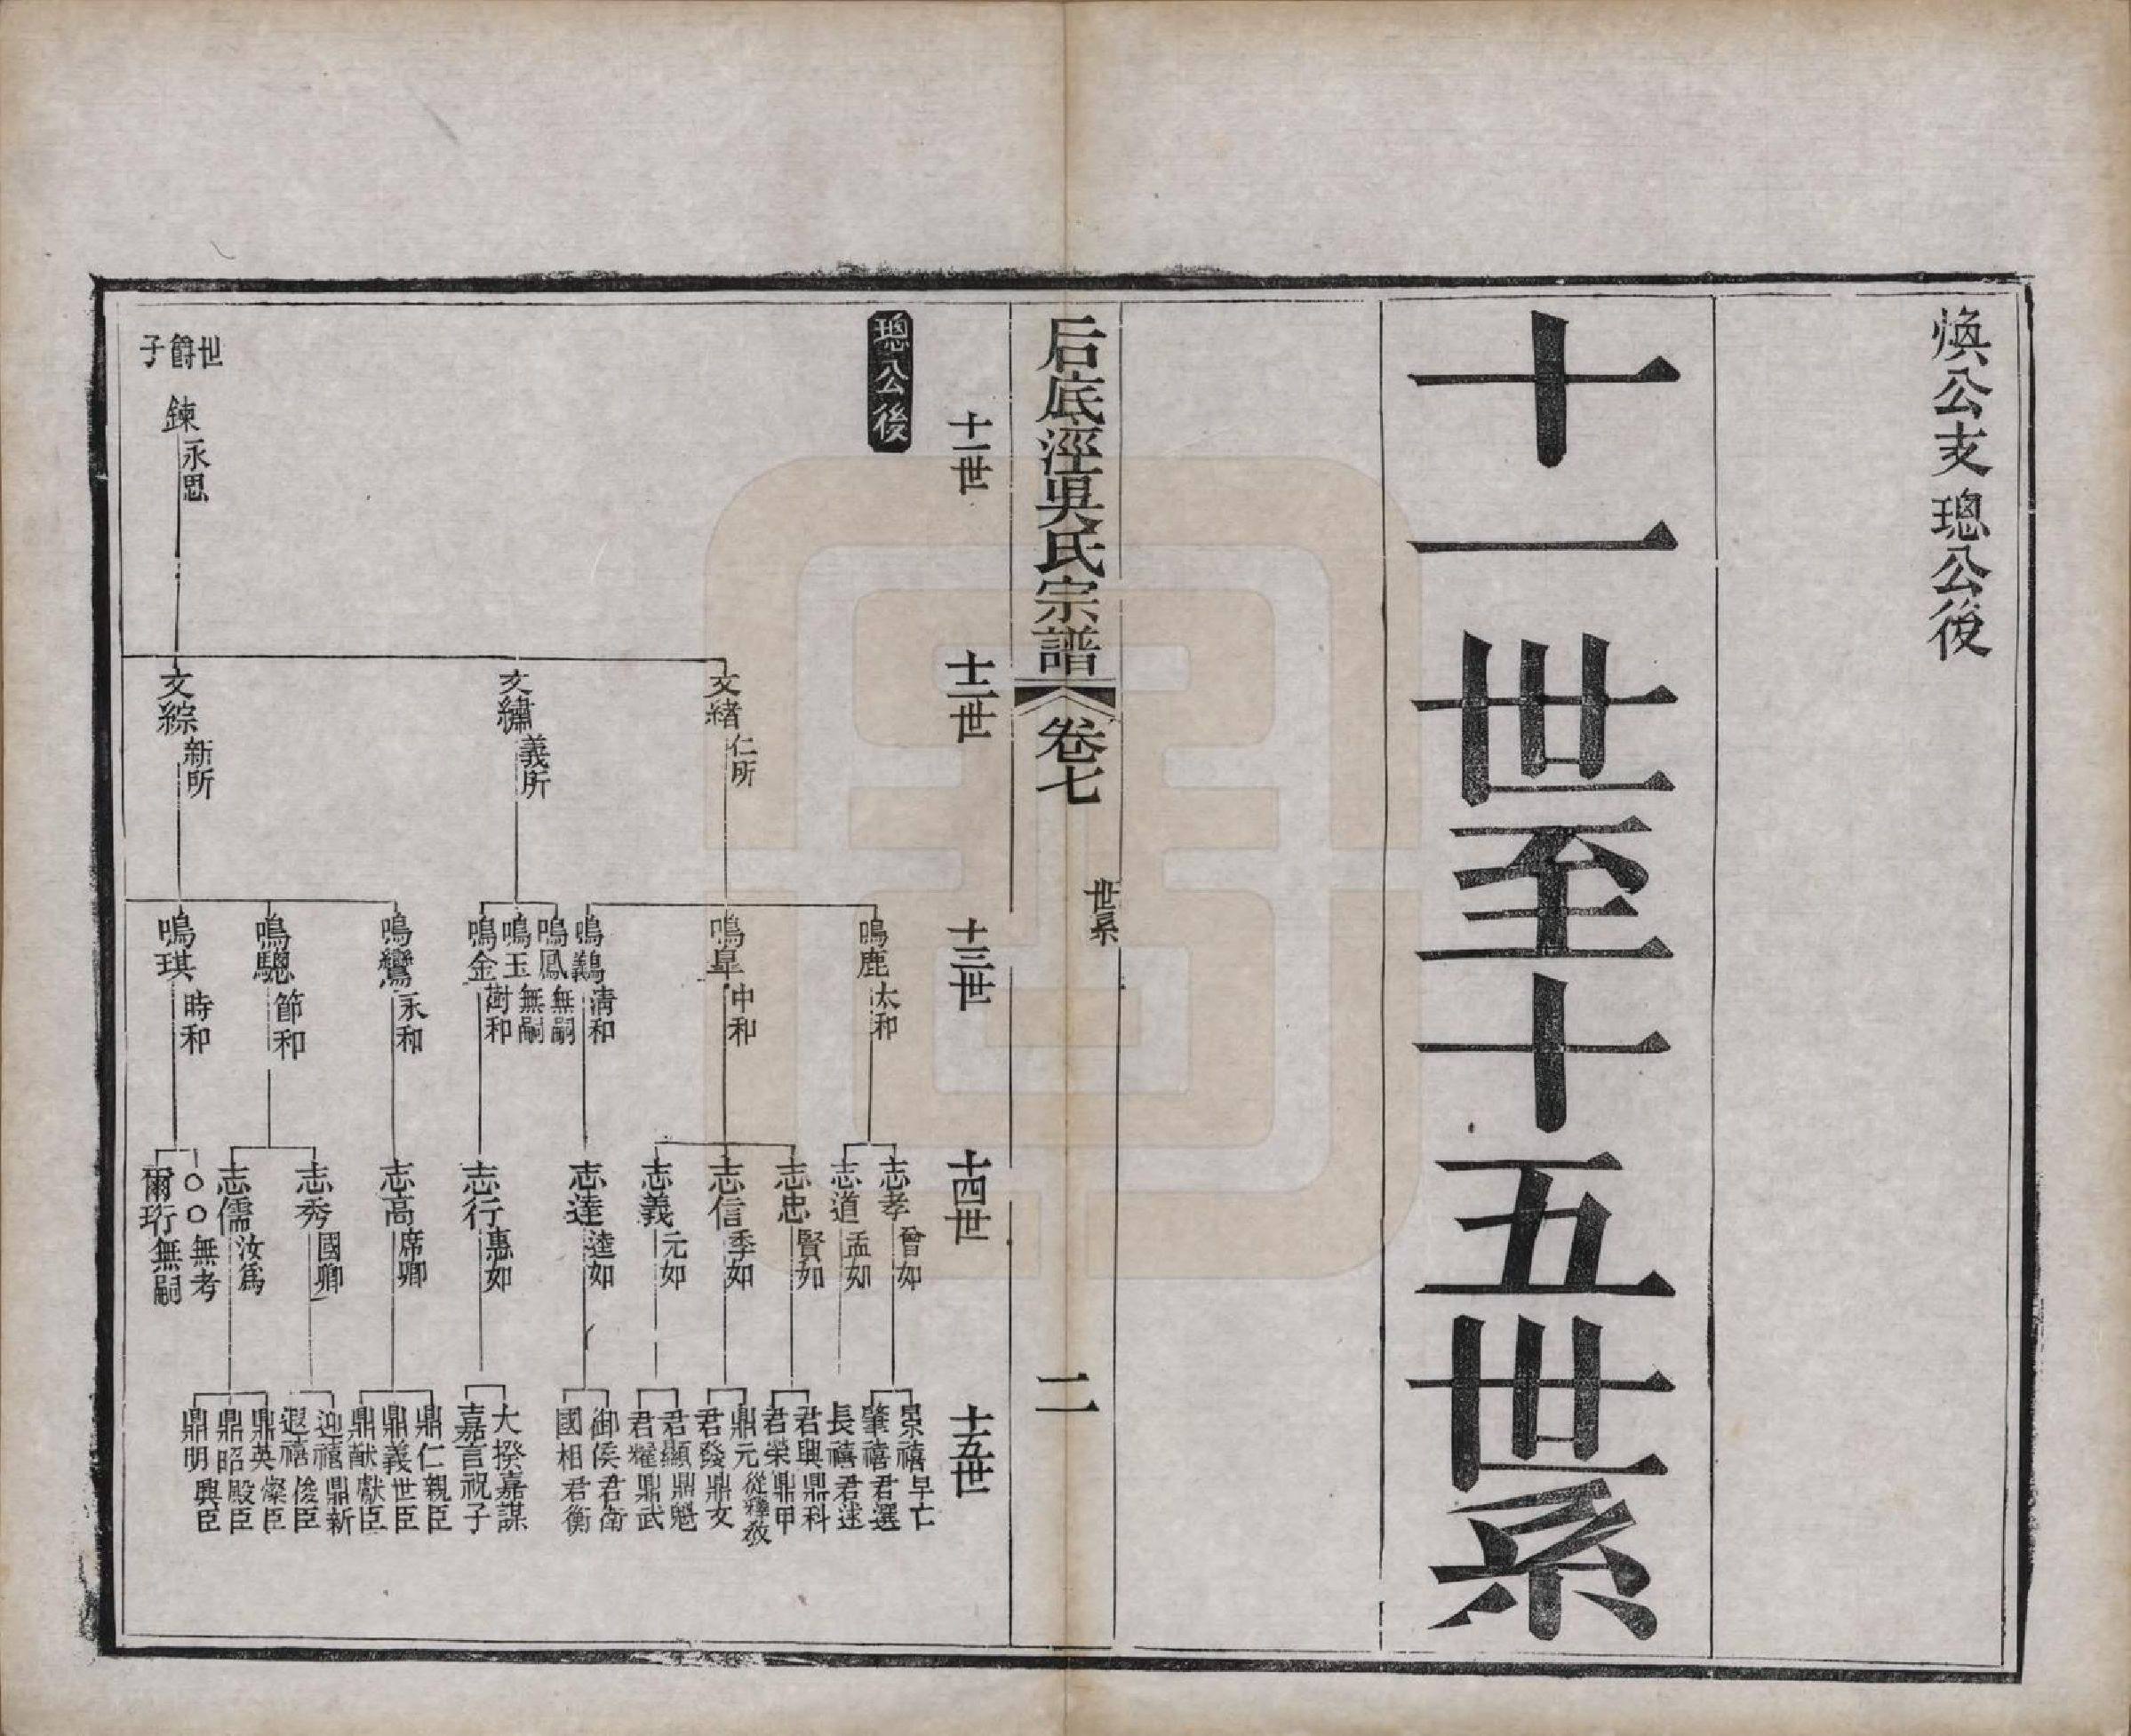 煥公支璁公後
十一世至十五世系
后底涇吳氏宗譜
卷七
世系
二
十一世
十二世
十三世
十四世
十五世
璁公後
世爵子
鍊 永思
文緒 仁所
文繡 義所
文綜 新所
鳴鹿 太和
鳴皐 中和
鳴鷬 淸和
鳴鳳 無嗣
鳴玉 無嗣
鳴金 樹和
鳴鸞 永和
鳴驄 節和
鳴琪 時和
志孝 曾如
志道 孟如
志忠 賢如
志信 季如
志義 元如
志達 逵如
志行 惠如
志高 席卿
志秀 國卿
志儒 汝爲
○○ 無考
爾珩 無嗣
景禧 早亡
肇禧 君選
長禧 君逑
君興 鼎科
君榮 鼎甲
鼎元 從釋敎
君發 鼎文
君顯 鼎魁
君耀 鼎武
御侯 君衛
國相 君衡
大揆 嘉謀
嘉言 祝子
鼎仁 親臣
鼎義 世臣
鼎猷 獻臣
迎禧 鼎新
遐禧 俊臣
鼎英 燦臣
鼎昭 殿臣
鼎明 興臣